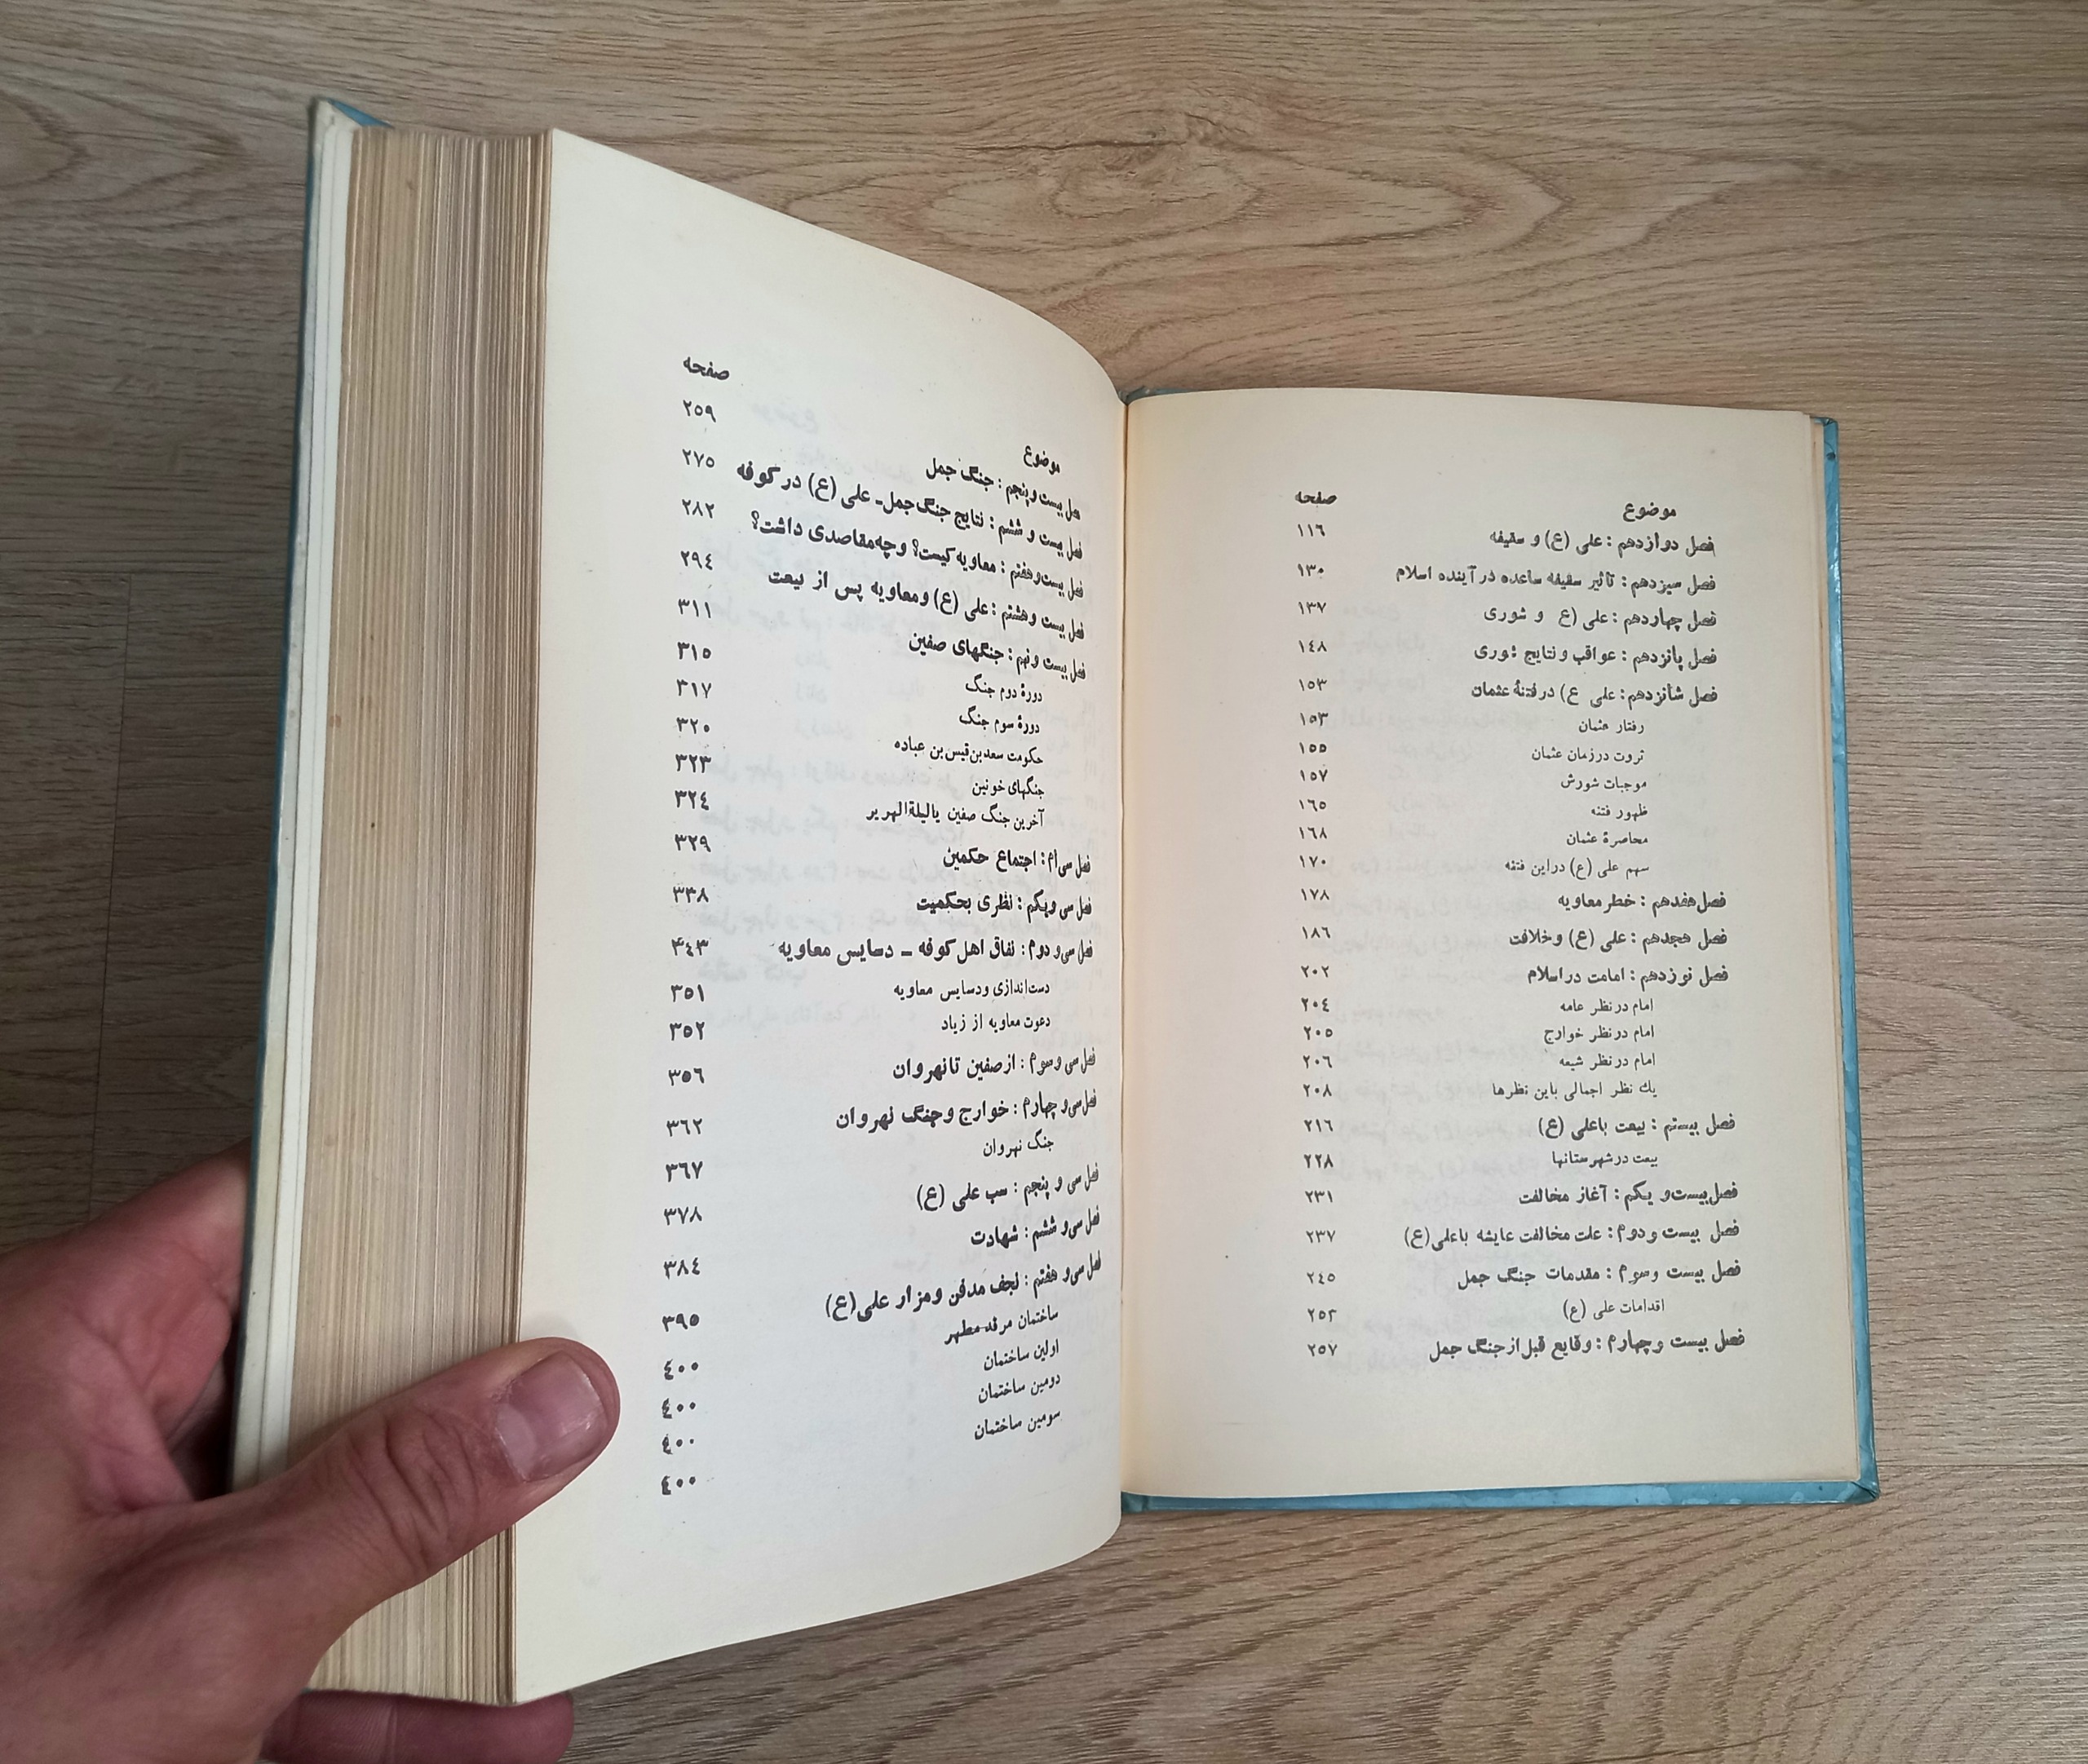 موضوع صفحه
فصل دوازدهم : علی (ع) و سقیفه ۱۱٦
فصل سیزدهم : تأثیر سقیفه ساعده در آینده اسلام ۱۳۰
فصل چهاردهم : علی (ع و شوری ۱۳۷
فصل پانزدهم : عواقب و نتایج شوری ۱٤۸
فصل شانزدهم : علی ع) در فتنهٔ عثمان ۱۵۳
رفتار عثمان ۱۵۳
ثروت در زمان عثمان ۱۵۵
موجبات شورش ۱۵۷
ظهور فتنه ۱٦۵
محاصرهٔ عثمان ۱٦۸
سهم علی (ع) در این فتنه ۱۷۰
فصل هفدهم : خطر معاویه ۱۷۸
فصل هجدهم : علی (ع) و خلافت ۱۸٦
فصل نوزدهم : امامت در اسلام ۲۰۲
امام در نظر عامه ۲۰٤
امام در نظر خوارج ۲۰۵
امام در نظر شیعه ۲۰٦
یك نظر اجمالی باین نظرها ۲۰۸
فصل بیستم : بیعت با علی (ع) ۲۱٦
بیعت در شهرستانها ۲۲۸
فصل بیست و یکم : آغاز مخالفت ۲۳۱
فصل بیست و دوم : علت مخالفت عایشه با علی (ع) ۲۳۷
فصل بیست و سوم : مقدمات جنگ جمل ۲٤۵
اقدامات علی (ع) ۲۵۲
فصل بیست و چهارم : وقایع قبل از جنگ جمل ۲۵۷
موضوع صفحه
فصل بیست و پنجم : جنگ جمل ۲۵۹
فصل بیست و ششم : نتایج جنگ جمل ـ علی (ع) در کوفه ۲۷۵
فصل بیست و هفتم : معاویه کیست؟ و چه مقاصدی داشت؟ ۲۸۲
فصل بیست و هشتم : علی (ع) و معاویه پس از بیعت ۲۹٤
فصل بیست و نهم : جنگهای صفین ۳۱۱
دورهٔ دوم جنگ ۳۱۵
دورهٔ سوم جنگ ۳۱۷
حکومت سعد بن قیس بن عباده ۳۲۰
جنگهای خونین ۳۲۳
آخرین جنگ صفین یا لیلةالهریر ۳۲٤
فصل سی‌ام : اجتماع حکمین ۳۲۹
فصل سی و یکم : نظری بحکمیت ۳۳۸
فصل سی و دوم : نفاق اهل کوفه ـ دسایس معاویه ۳٤۳
دست‌اندازی و دسایس معاویه ۳۵۱
دعوت معاویه از زیاد ۳۵۲
فصل سی و سوم : از صفین تا نهروان ۳۵٦
فصل سی و چهارم : خوارج و جنگ نهروان ۳٦۲
جنگ نهروان ۳٦۷
فصل سی و پنجم : سب علی (ع) ۳۷۸
فصل سی و ششم : شهادت ۳۸٤
فصل سی و هفتم : نجف مدفن و مزار علی (ع) ۳۹۵
ساختمان مرقد مطهر ٤۰۰
اولین ساختمان ٤۰۰
دومین ساختمان ٤۰۰
سومین ساختمان ٤۰۰